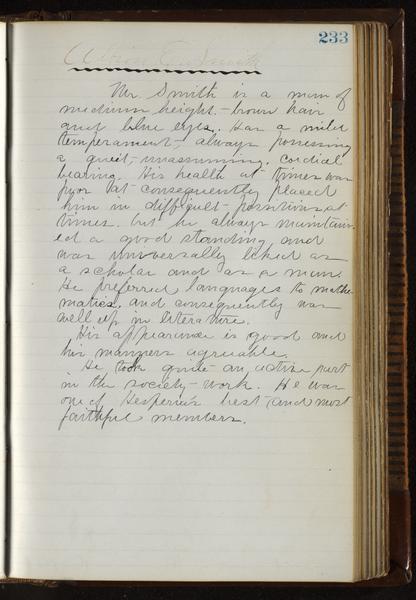 233
Smith
Mr. Smith is a man of
medium height - brown hair
and blue eyes. Has a mild
temperament, always possessing
a quiet, unassuming, cordial
bearing. His health at times was
poor that consequently placed
him in difficult positions at
times. but he always maintain-
ed a good standing and
was universally liked as
a scholar and as a man.
He preferred languages to mathe
matics. and consequently was
well up in literature.
His appearance is good and
his manners agreeable.
He took quite an active part
in the society-work. He was
one of Hesperia's best and most
faithful members.